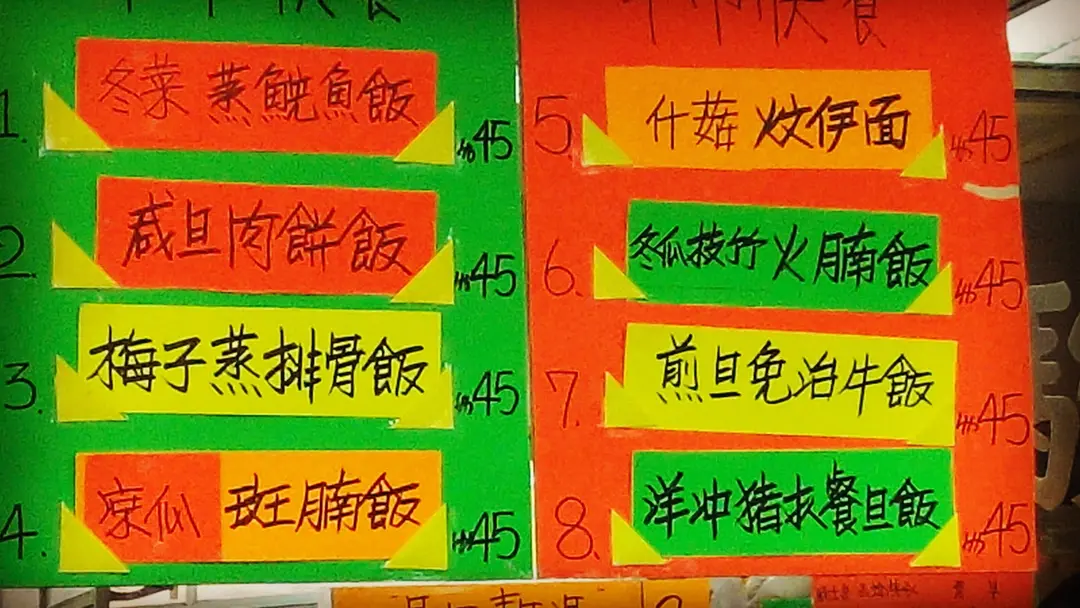 1. 冬菜 蒸鯇魚飯 45
2. 咸旦肉餅飯 45
3. 梅子蒸排骨飯 45
4. 凉瓜 斑腩飯 45
5 什菇 炆伊面 45
6. 冬瓜枝竹火腩飯 45
7. 煎旦免治牛飯 45
8. 洋冲猪扒餐旦飯 45